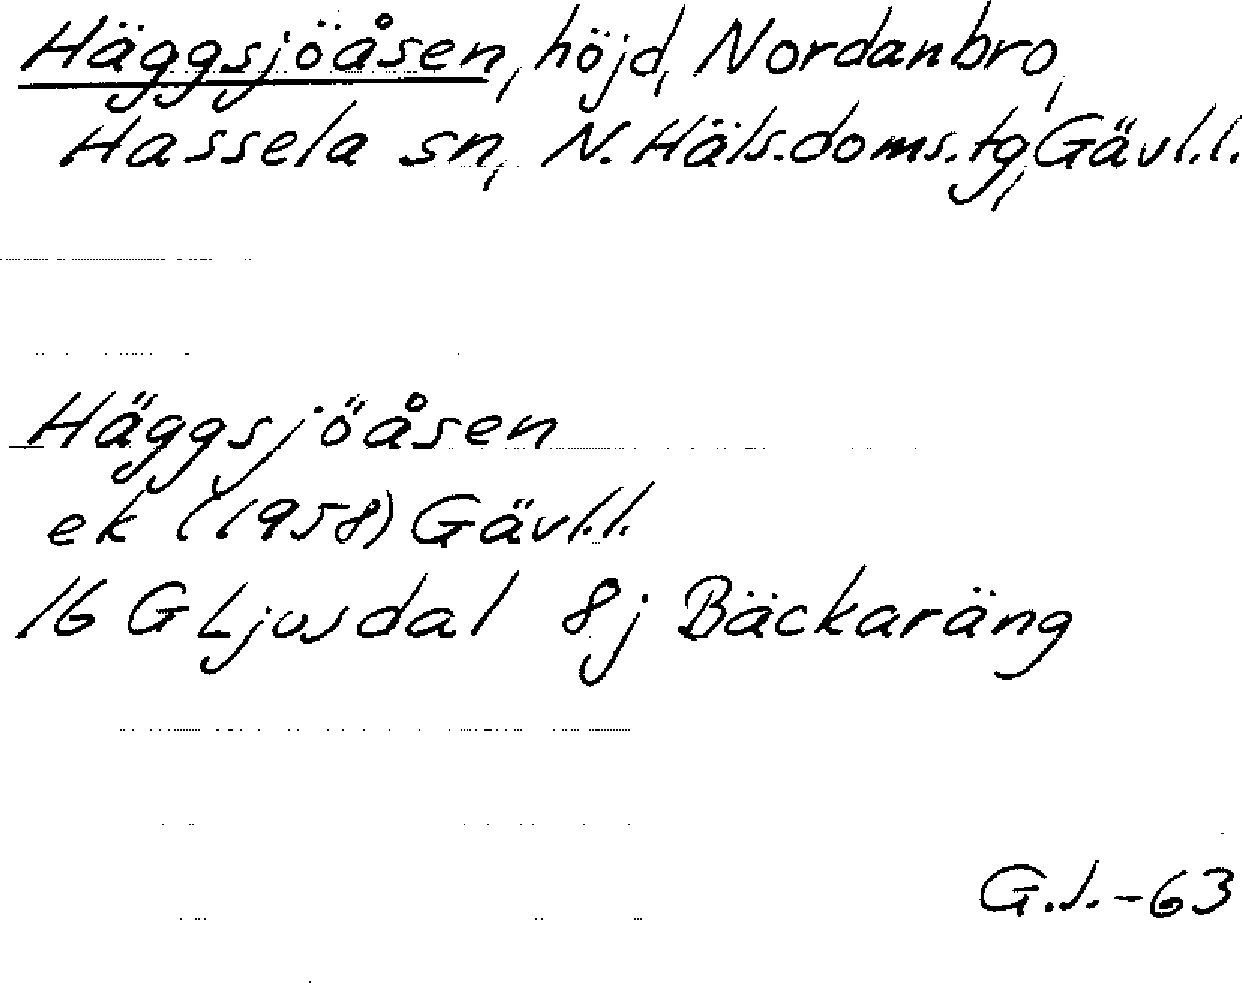 Häggsjöåsen, höjd, Nordanbro,
Hassela sn, N. Häls. doms. tg, Gävl.l.
Häggsjöåsen
ek (1958) Gävl.l.
16 G Ljusdal 8j Bäckaräng
G.J.-63